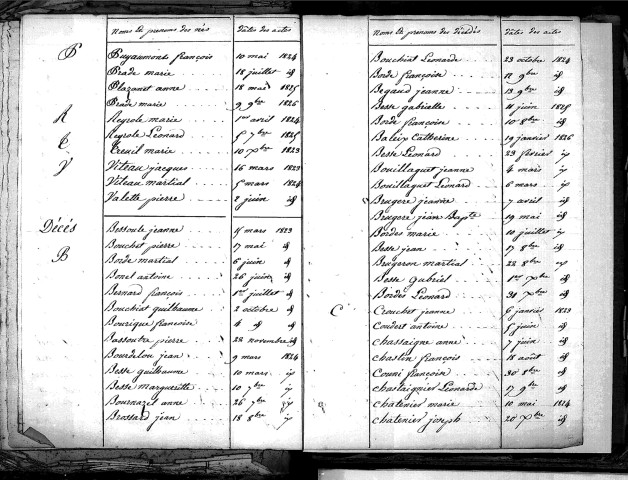 Noms et prenoms des nés dates des actes
P Puyaumont françois 10 mai 1824
Prade marie 18 juillet id
Plazanet anne 18 mai 1825
Prade marie 9 9bre 1826
R Reyrole marie 1er avril 1824
Reyrole Léonard 5 7bre 1825
T Treuil marie 10 Xbre 1823
V Viteau jacques 16 mars 1823
Viteau martial 5 mars 1824
Valette pierre 2 juin id
Décés
B Bessoule jeanne 15 mars 1823
Bouchet pierre 17 mai id
Borde martial 6 juin id
Bonet antoine 26 juin id
Bernard françois 1er juillet id
Bouchiat guilhaume 2 octobre id
Bourique francoise 4 id id
Bassoutre pierre 28 novembre id
Bourdelou jean 9 mars 1824
Besse guilhaume 10 mars id
Besse margueritte 10 7bre id
Bournazel anne 26 7bre id
Brossard jean 18 8bre id
Noms et prenoms des décédés dates des actes
Bouchiat Léonarde 23 octobre 1824
Borde françoise 12 9bre id
Begaud jeanne 19 9bre id
Besse gabrielle 11 juin 1825
Borde francoise 10 8bre id
Baleix Catherine 19 janvier 1826
Besse Léonard 23 février id
Bouillaguet jeanne 4 mars id
Bouillaguet Léonard 6 mars id
Brugere jeanne 7 avril id
Brugere jean Bapte 19 mai id
Bordes marie 10 juillet id
Besse jean 17 8bre id
Brugeron martial 28 8bre id
Besse gabriel 1er Xbre id
Bordes Léonard 30 Xbre id
C Crouchet jeanne 6 janvier 1823
Coudert antoine 5 juin id
Chassaigne anne 7 juin id
Chastin françois 18 août id
Couni françoise 30 8bre id
Chastaignier Léonarde 17 9bre id
Chatenier marie 10 mai 1824
Chatenier joseph 20 Xbre id